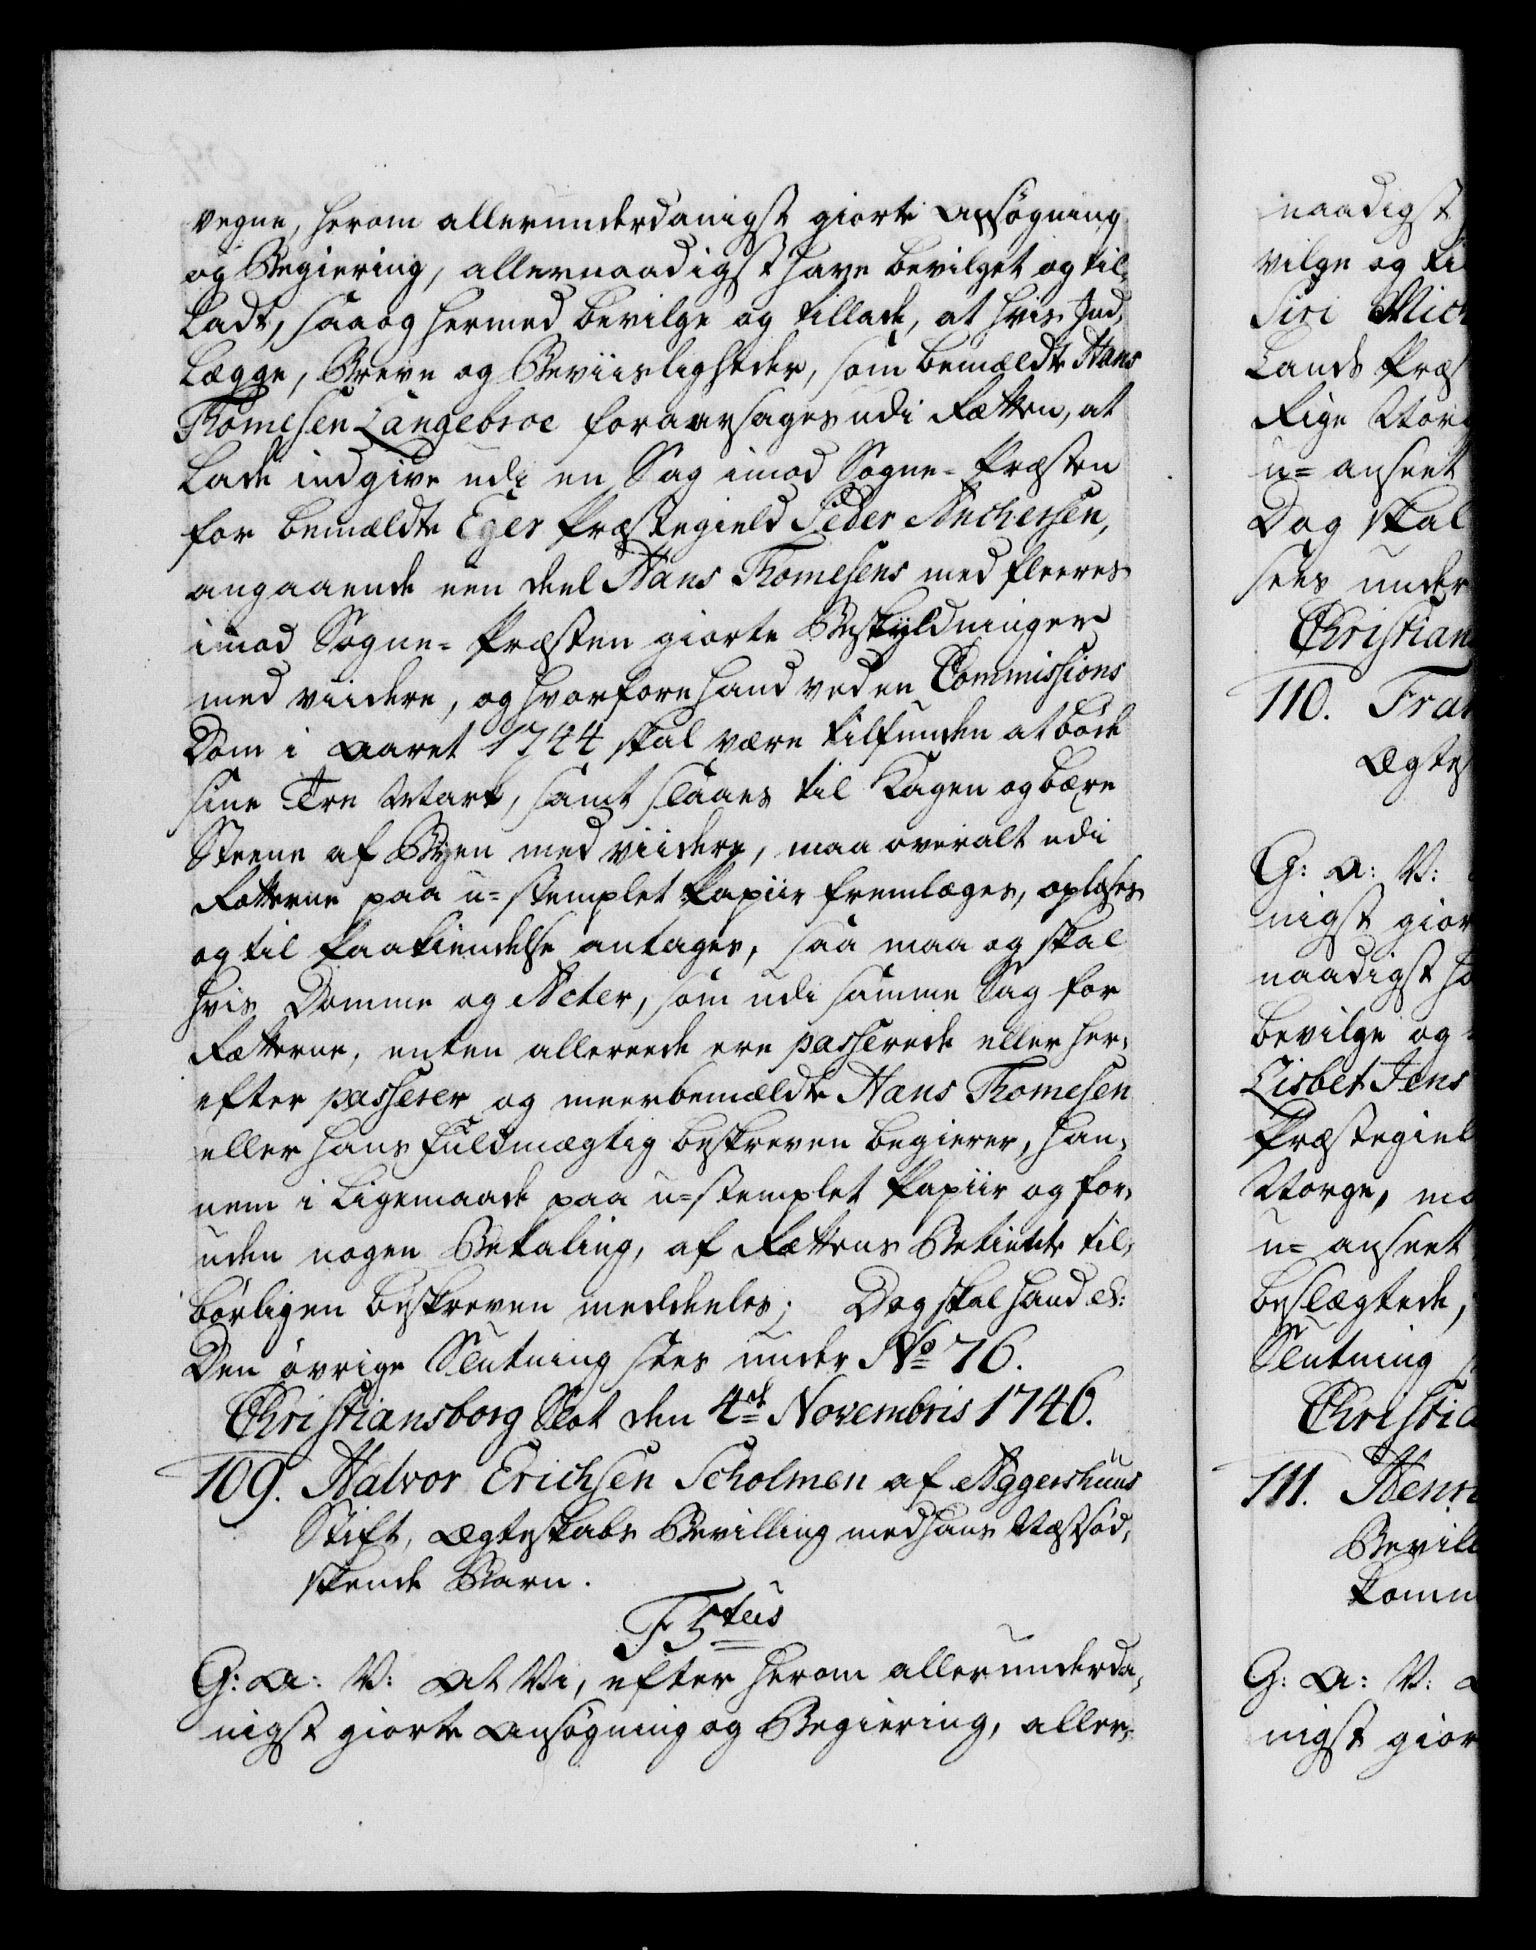 vegne, herom allerunderdanigst giorte Ansøgning
og Begiering, allernaadigst have bevilget og til-
ladt, saa og hermed bevilge og tillade, at hvis Ind-
lægge, Breve og Beviisligheder, som bemældte Hans
Thomesen Langebroe foraarsages udi Rætten, at
lade indgive udi en Sag imod Sogne-Præsten
for bemældte Eger Præstegield Peder Anchersen,
angaaende een deel Hans Thomesens med fleeres
imod Sogne-Præsten giorte Beskyldninger
med viidere, og hvorfore hand ved en Commissions
Dom i Aaret 1744 skal være tilfunden at bøde
sine Tre Mark, samt slaaes til Kagen og bære
Steene af Byen med viidere, maa overalt udi
Rætterne paa u-stemplet Papiir fremlæges, oplæses
og til Paakiendelse antages, saa maa og skal
hvis Domme og Acter, som udi samme Sag for
Rætterne, enten allereede ere passerede eller her-
efter passerer og meerbemældte Hans Thomesen
eller hans Fuldmægtig beskreven begierer, han-
nem i Ligemaade paa u-stemplet Papiir og for-
uden nogen Betaling, af Rættens Betiente til-
børligen beskreven meddeeles; Dog skal hand &:
Den øvrige Slutning sees under No 76.
Christiansborg Slot den 4de Novembris 1746.
109. Halvor Erichsen Scholmen af Aggershuus
Stift, Ægteskabs Bevilling med hans Næstsød-
skende Barn.
F 5tus
G: A: V: At Vi, efter herom allerunderda-
nigst giorte Ansøgning og Begiering, aller-
naadigst
vilge og ti
Siri Mich
Lands Præs
Rige Norg
u-anseet
Dog skal
sees under
Christian
110. Fran
Ægtes
G: A: V:
nigst gior
naadigst ha
bevilge og
Lisbet Jens
Præstegiel
Norge, ma
u-anseet
beslægtede,
Slutning
Christia
111. Henri
Bevill
Komm
G: A: V: A
nigst gior